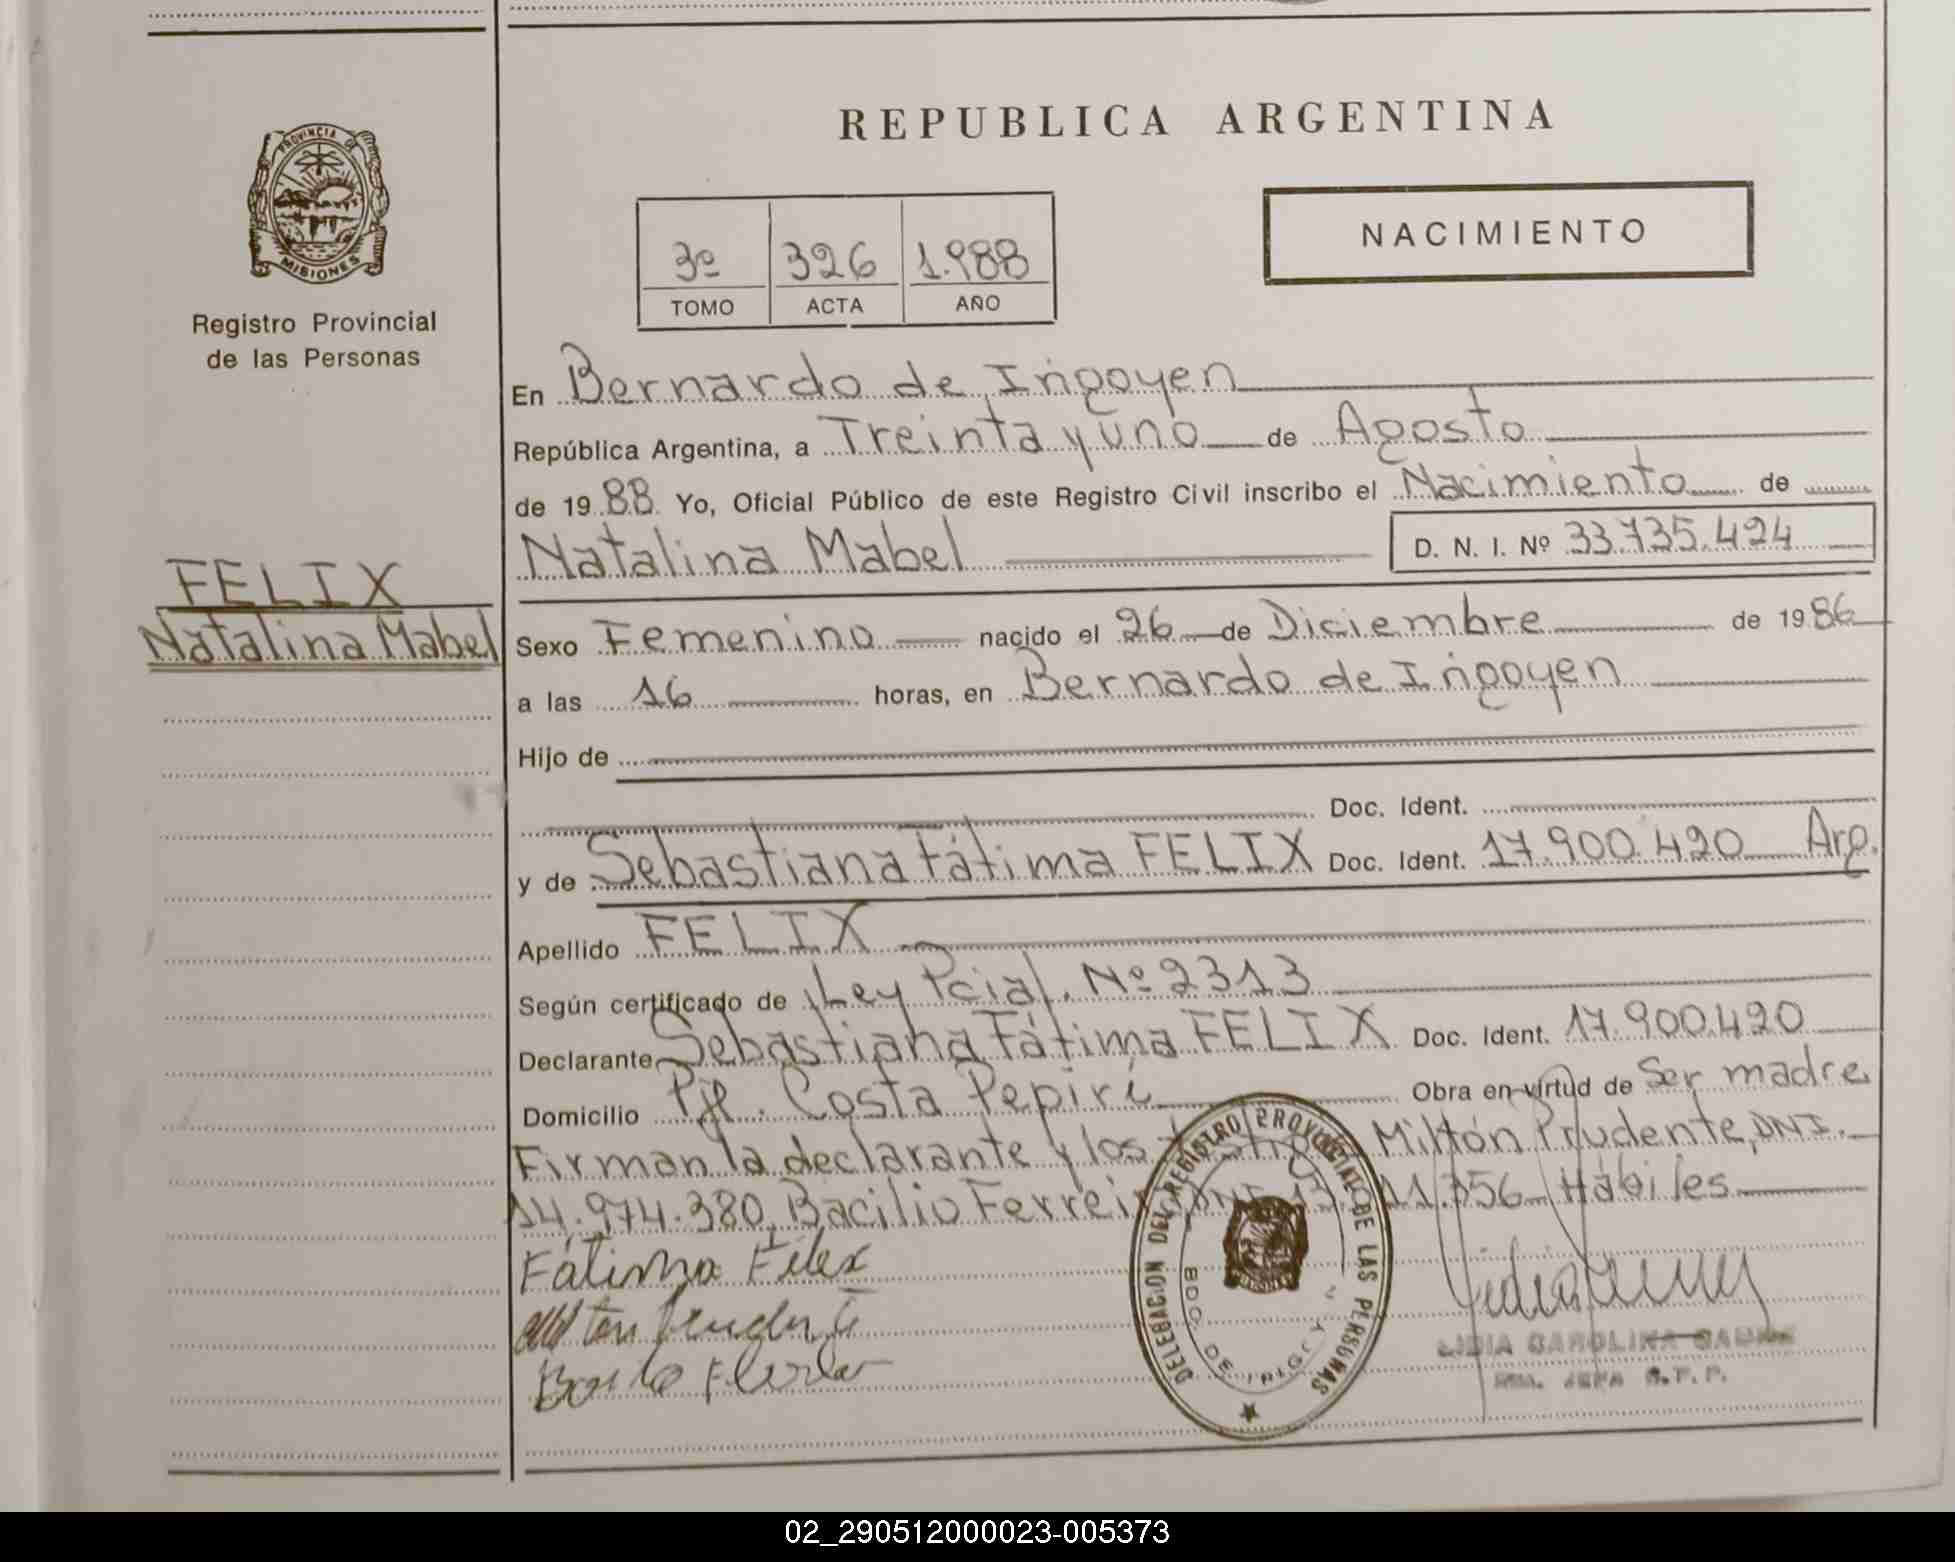 REPUBLICA ARGENTINA
PROVINCIA DE
MISIONES
Registro Provincial
de las Personas
NACIMIENTO
3º 326 1.988
TOMO ACTA AÑO
En Bernardo de Irigoyen
República Argentina, a Treinta y uno de Agosto
de 1988 Yo, Oficial Público de este Registro Civil inscribo el Nacimiento de
Natalina Mabel D. N. I. Nº 33.735.424
FELIX
Natalina Mabel
Sexo Femenino nacido el 26 de Diciembre de 1986
a las 16 horas, en Bernardo de Irigoyen
Hijo de
Doc. Ident.
y de Sebastiana Fátima FELIX Doc. Ident. 17.900.420 Arg.
Apellido FELIX
Según certificado de Ley Pcial. Nº 2313
Declarante Sebastiana Fátima FELIX Doc. Ident. 17.900.420
Domicilio Pje. Costa Pepirí Obra en virtud de Ser madre
Firman la declarante y los testigos Milton Prudente, DNI.
14.974.380, Bacilio Ferreira DNI 356 Hábiles
Fátima Félex
DELEGACION DEL REGISTRO PROVINCIAL DE LAS PERSONAS
BDO. DE IRIGOYEN
LIDIA CAROLINA
JEFA
02_290512000023-005373